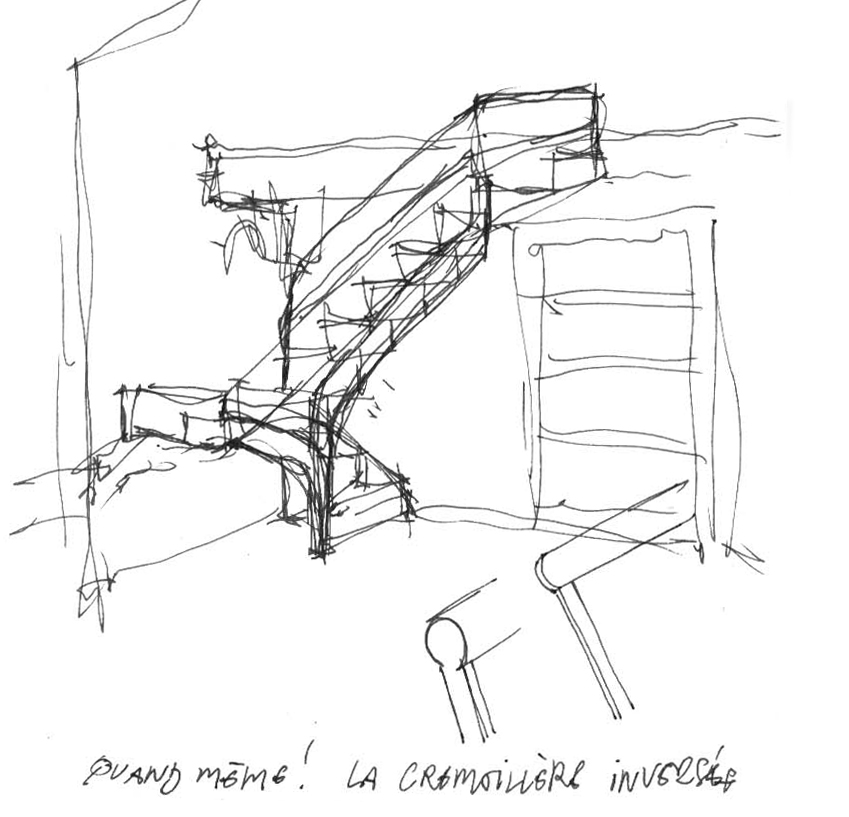 QUAND MÊME! LA CREMOILLÈRE INVERSÉE